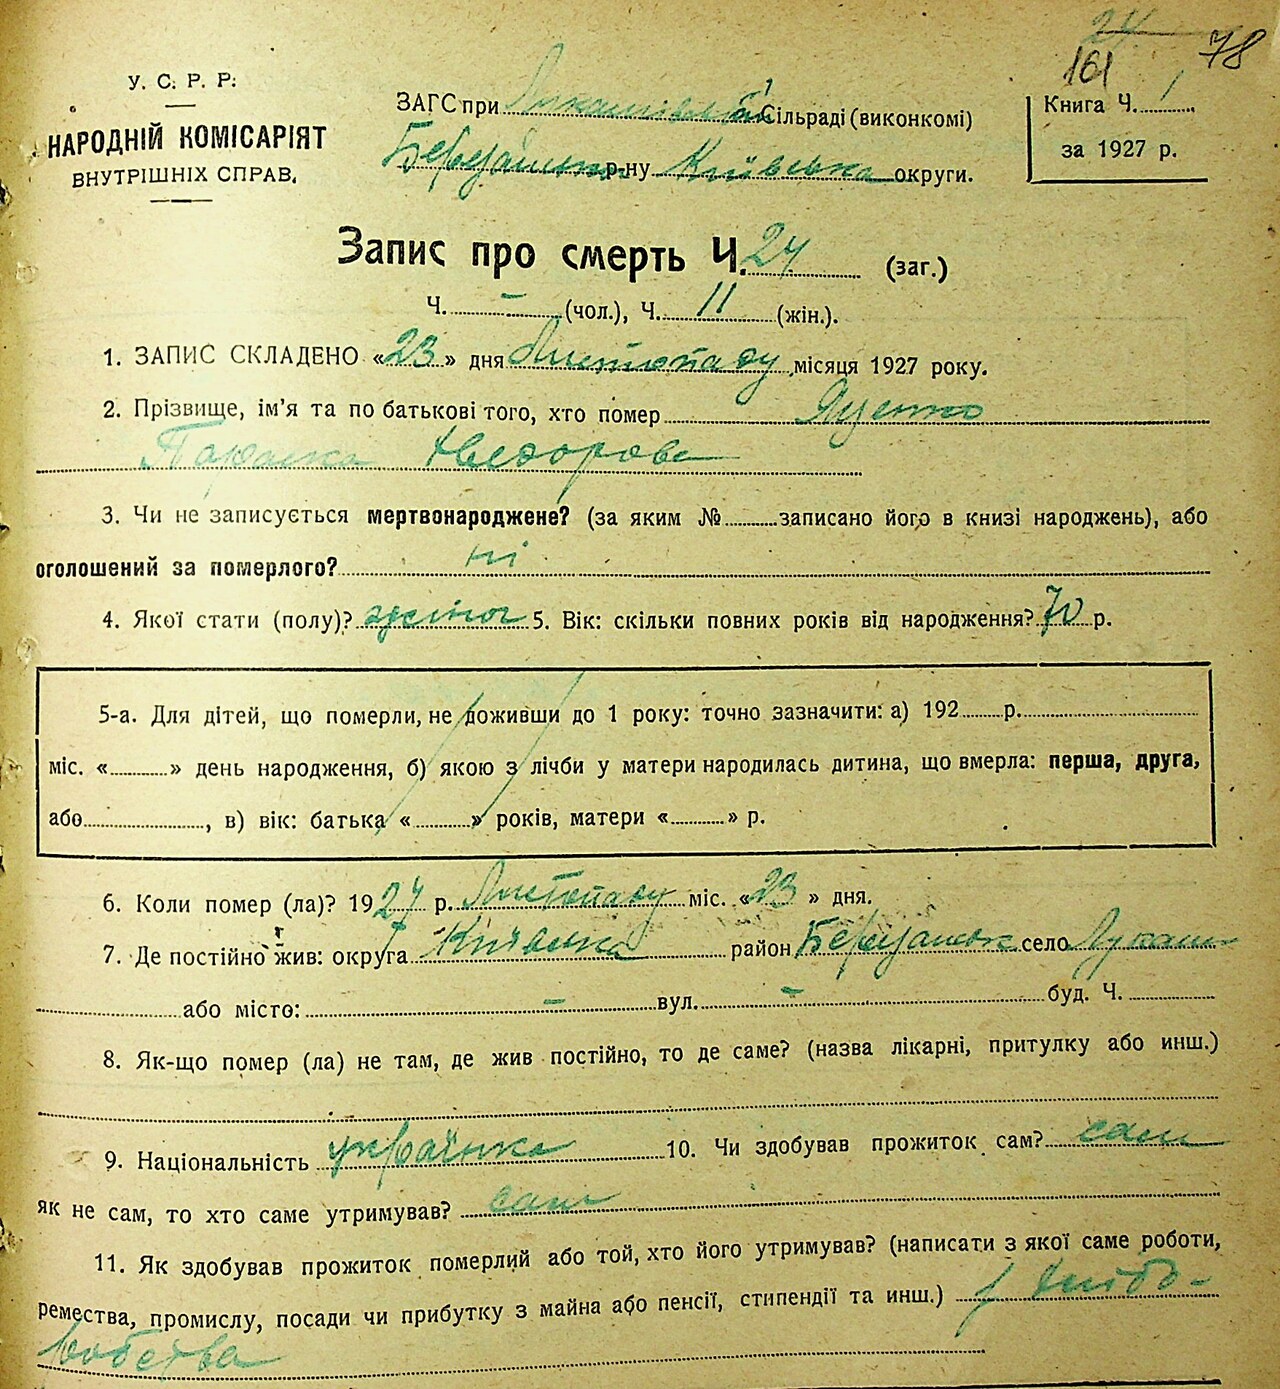 24
161 78
У. С. Р. Р.
НАРОДНІЙ КОМІСАРІЯТ
ВНУТРІШНІХ СПРАВ.
ЗАГС при Сільраді (виконкомі)
р-ну Київська округи.
Книга Ч. 1
за 1927 р.
Запис про смерть Ч. 24 (заг.)
Ч. – (чол.), Ч. 11 (жін.).
1. ЗАПИС СКЛАДЕНО «23» дня Листопаду місяця 1927 року.
2. Прізвище, ім'я та по батькові того, хто помер Яценко
Параска Федорова
3. Чи не записується мертвонароджене? (за яким № записано його в книзі народжень), або
оголошений за померлого? ні
4. Якої стати (полу)? жіноч 5. Вік: скільки повних років від народження? 70 р.
5-а. Для дітей, що померли, не доживши до 1 року: точно зазначити: а) 192 р.
міс. « » день народження, б) якою з лічби у матери народилась дитина, що вмерла: перша, друга,
або , в) вік: батька « » років, матери « » р.
6. Коли помер (ла)? 1927 р. Листопаду міс. «23» дня.
7. Де постійно жив: округа Київська район село Лукаші
або місто: – вул. – буд. Ч.
8. Як-що помер (ла) не там, де жив постійно, то де саме? (назва лікарні, притулку або инш.)
9. Національність українка 10. Чи здобував прожиток сам? сам
як не сам, то хто саме утримував? сам
11. Як здобував прожиток померлий або той, хто його утримував? (написати з якої саме роботи,
ремества, промислу, посади чи прибутку з майна або пенсії, стипендії та инш.) з хлібо-
робства